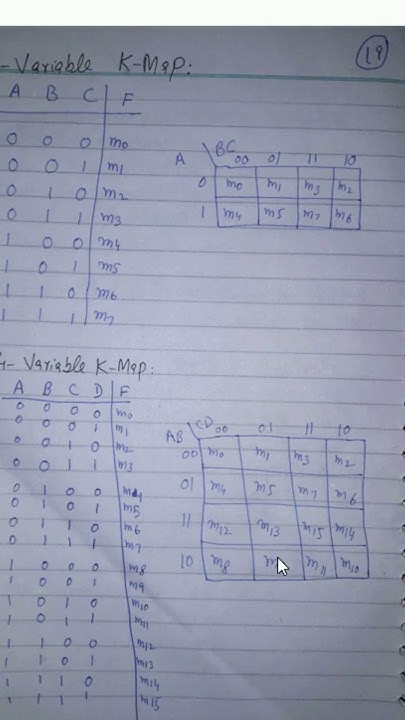 19
-Variable K-Map:
A B C F
0 0 0 m0
0 0 1 m1
0 1 0 m2
0 1 1 m3
1 0 0 m4
1 0 1 m5
1 1 0 m6
1 1 1 m7
A BC 00 01 11 10
0 m0 m1 m3 m2
1 m4 m5 m7 m6
4- Variable K-Map:
A B C D F
0 0 0 0 m0
0 0 0 1 m1
0 0 1 0 m2
0 0 1 1 m3
0 1 0 0 m4
0 1 0 1 m5
0 1 1 0 m6
0 1 1 1 m7
1 0 0 0 m8
1 0 0 1 m9
1 0 1 0 m10
1 0 1 1 m11
1 1 0 0 m12
1 1 0 1 m13
1 1 1 0 m14
1 1 1 1 m15
AB CD 00 01 11 10
00 m0 m1 m3 m2
01 m4 m5 m7 m6
11 m12 m13 m15 m14
10 m8 m11 m10